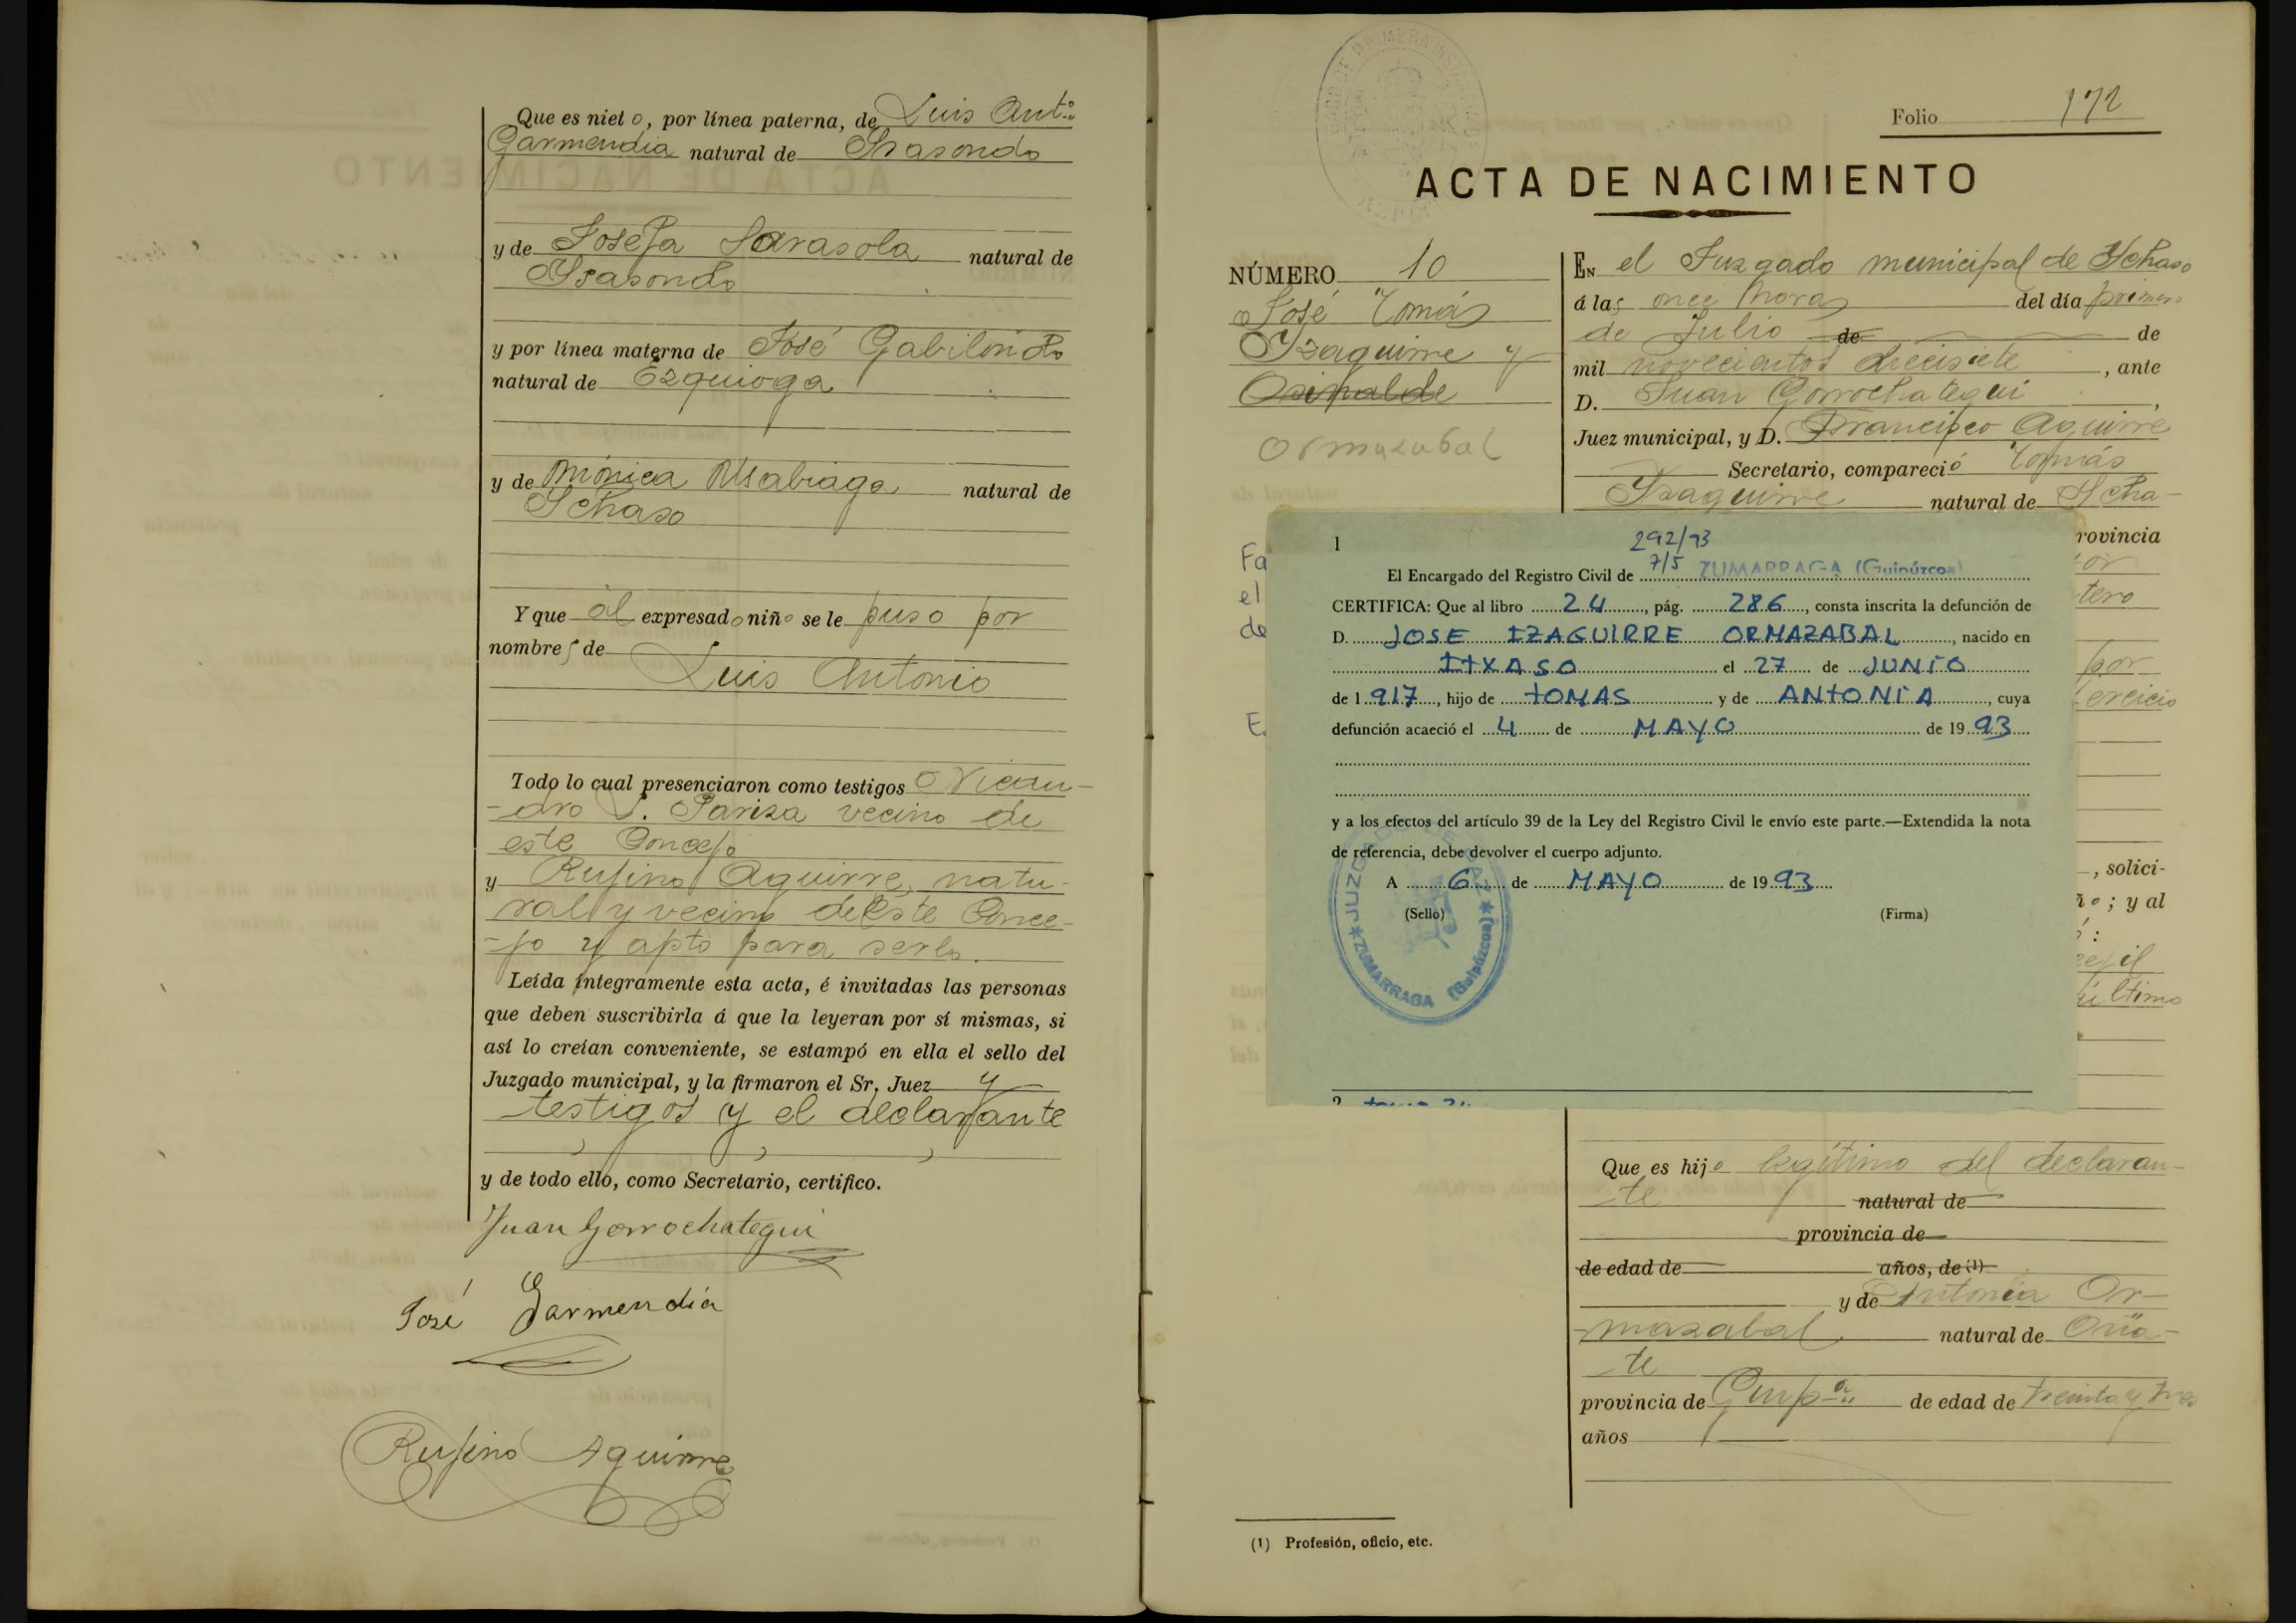 Que es nieto, por línea paterna, de Luis Ant.º
Garmendia natural de Isasondo
y de Josefa Sarasola natural de
Isasondo
y por línea materna de José Gabilondo
natural de Ezquioga
y de Mónica Usabiaga natural de
Ichaso
Y que al expresado niño se le puso por
nombres de
Luis Antonio
Todo lo cual presenciaron como testigos Nican-
-dro S. Pariza vecino de
este Concejo
y Rufino Aguirre, natu-
ral y vecino de este Conce-
-jo y apto para serlo.
Leída íntegramente esta acta, é invitadas las personas
que deben suscribirla á que la leyeran por sí mismas, si
así lo creían conveniente, se estampó en ella el sello del
Juzgado municipal, y la firmaron el Sr. Juez y
testigos y el declarante
y de todo ello, como Secretario, certifico.
Juan Gorrochategui
José Garmendia
Rufino Aguirre
Folio 172
ACTA DE NACIMIENTO
NÚMERO 10
José Tomás
Yzaguirre y
Ormazabal
EN el Juzgado municipal de Ychaso
á las once horas del día primero
de Julio de de
mil novecientos diecisiete, ante
D. Juan Gorrochategui,
Juez municipal, y D. Francisco Aguirre
Secretario, compareció Tomás
Yzaguirre natural de Ycha-
rovincia
tero
por
ercicio
, solici-
; y al
último
Fa
el
de
E.
1
292/93
7/5 ZUMARRAGA (Guipúzcoa)
El Encargado del Registro Civil de
CERTIFICA: Que al libro 24, pág. 286, consta inscrita la defunción de
D. JOSE IZAGUIRRE ORMAZABAL, nacido en
ITXASO el 27 de JUNIO
de 1917, hijo de TOMAS y de ANTONIA, cuya
defunción acaeció el 4 de MAYO de 1993
y a los efectos del artículo 39 de la Ley del Registro Civil le envío este parte.—Extendida la nota
de referencia, debe devolver el cuerpo adjunto.
A 6 de MAYO de 1993
(Sello) (Firma)
JUZGADO DE PAZ * ZUMARRAGA (Guipúzcoa) *
Que es hijo legítimo del declaran-
te natural de
provincia de
de edad de años, de (1)
y de Antonia Or-
-mazabal natural de Oña-
te
provincia de Guip.ª de edad de treinta y tres
años
(1) Profesión, oficio, etc.